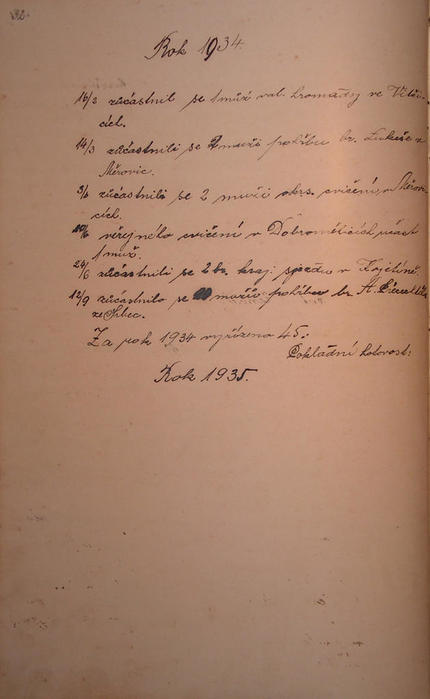 Rok 1934.
16/3 zúčastnil se 1 muž val. hromady ve
cích.
14/3 zúčastnili se 2 muži pohřbu br. Lukeše z
Měrovic.
3/6 zúčastnili se 2 muži okrs. cvičení, v Měrov-
cích.
10/6 veřejného cvičení v Dobroměticích účast
1 muž.
24/6 zúčastnili se 2 br. kraj. sjezdu v Kojetíně.
12/9 zúčastnilo se 10 mužů pohřbu br. A.
ze Srbec.
Za rok 1934 vyřízeno 45:
Pokladní hotovost:
Rok 1935.